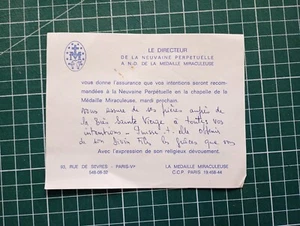 LE DIRECTEUR
DE LA NEUVAINE PERPETUELLE
A N.D. DE LA MEDAILLE MIRACULEUSE
vous donne l'assurance que vos intentions seront recom-
mandées à la Neuvaine Perpétuelle en la chapelle de la
Médaille Miraculeuse, mardi prochain.
vous assure de ses prières auprès de
la Très Sainte Vierge à toutes vos
intentions. elle
de son Divin Fils les grâces que vous
Avec l'expression de son religieux dévouement.
95, RUE DE SEVRES - PARIS-VIe
LA MEDAILLE MIRACULEUSE
C.C.P. PARIS